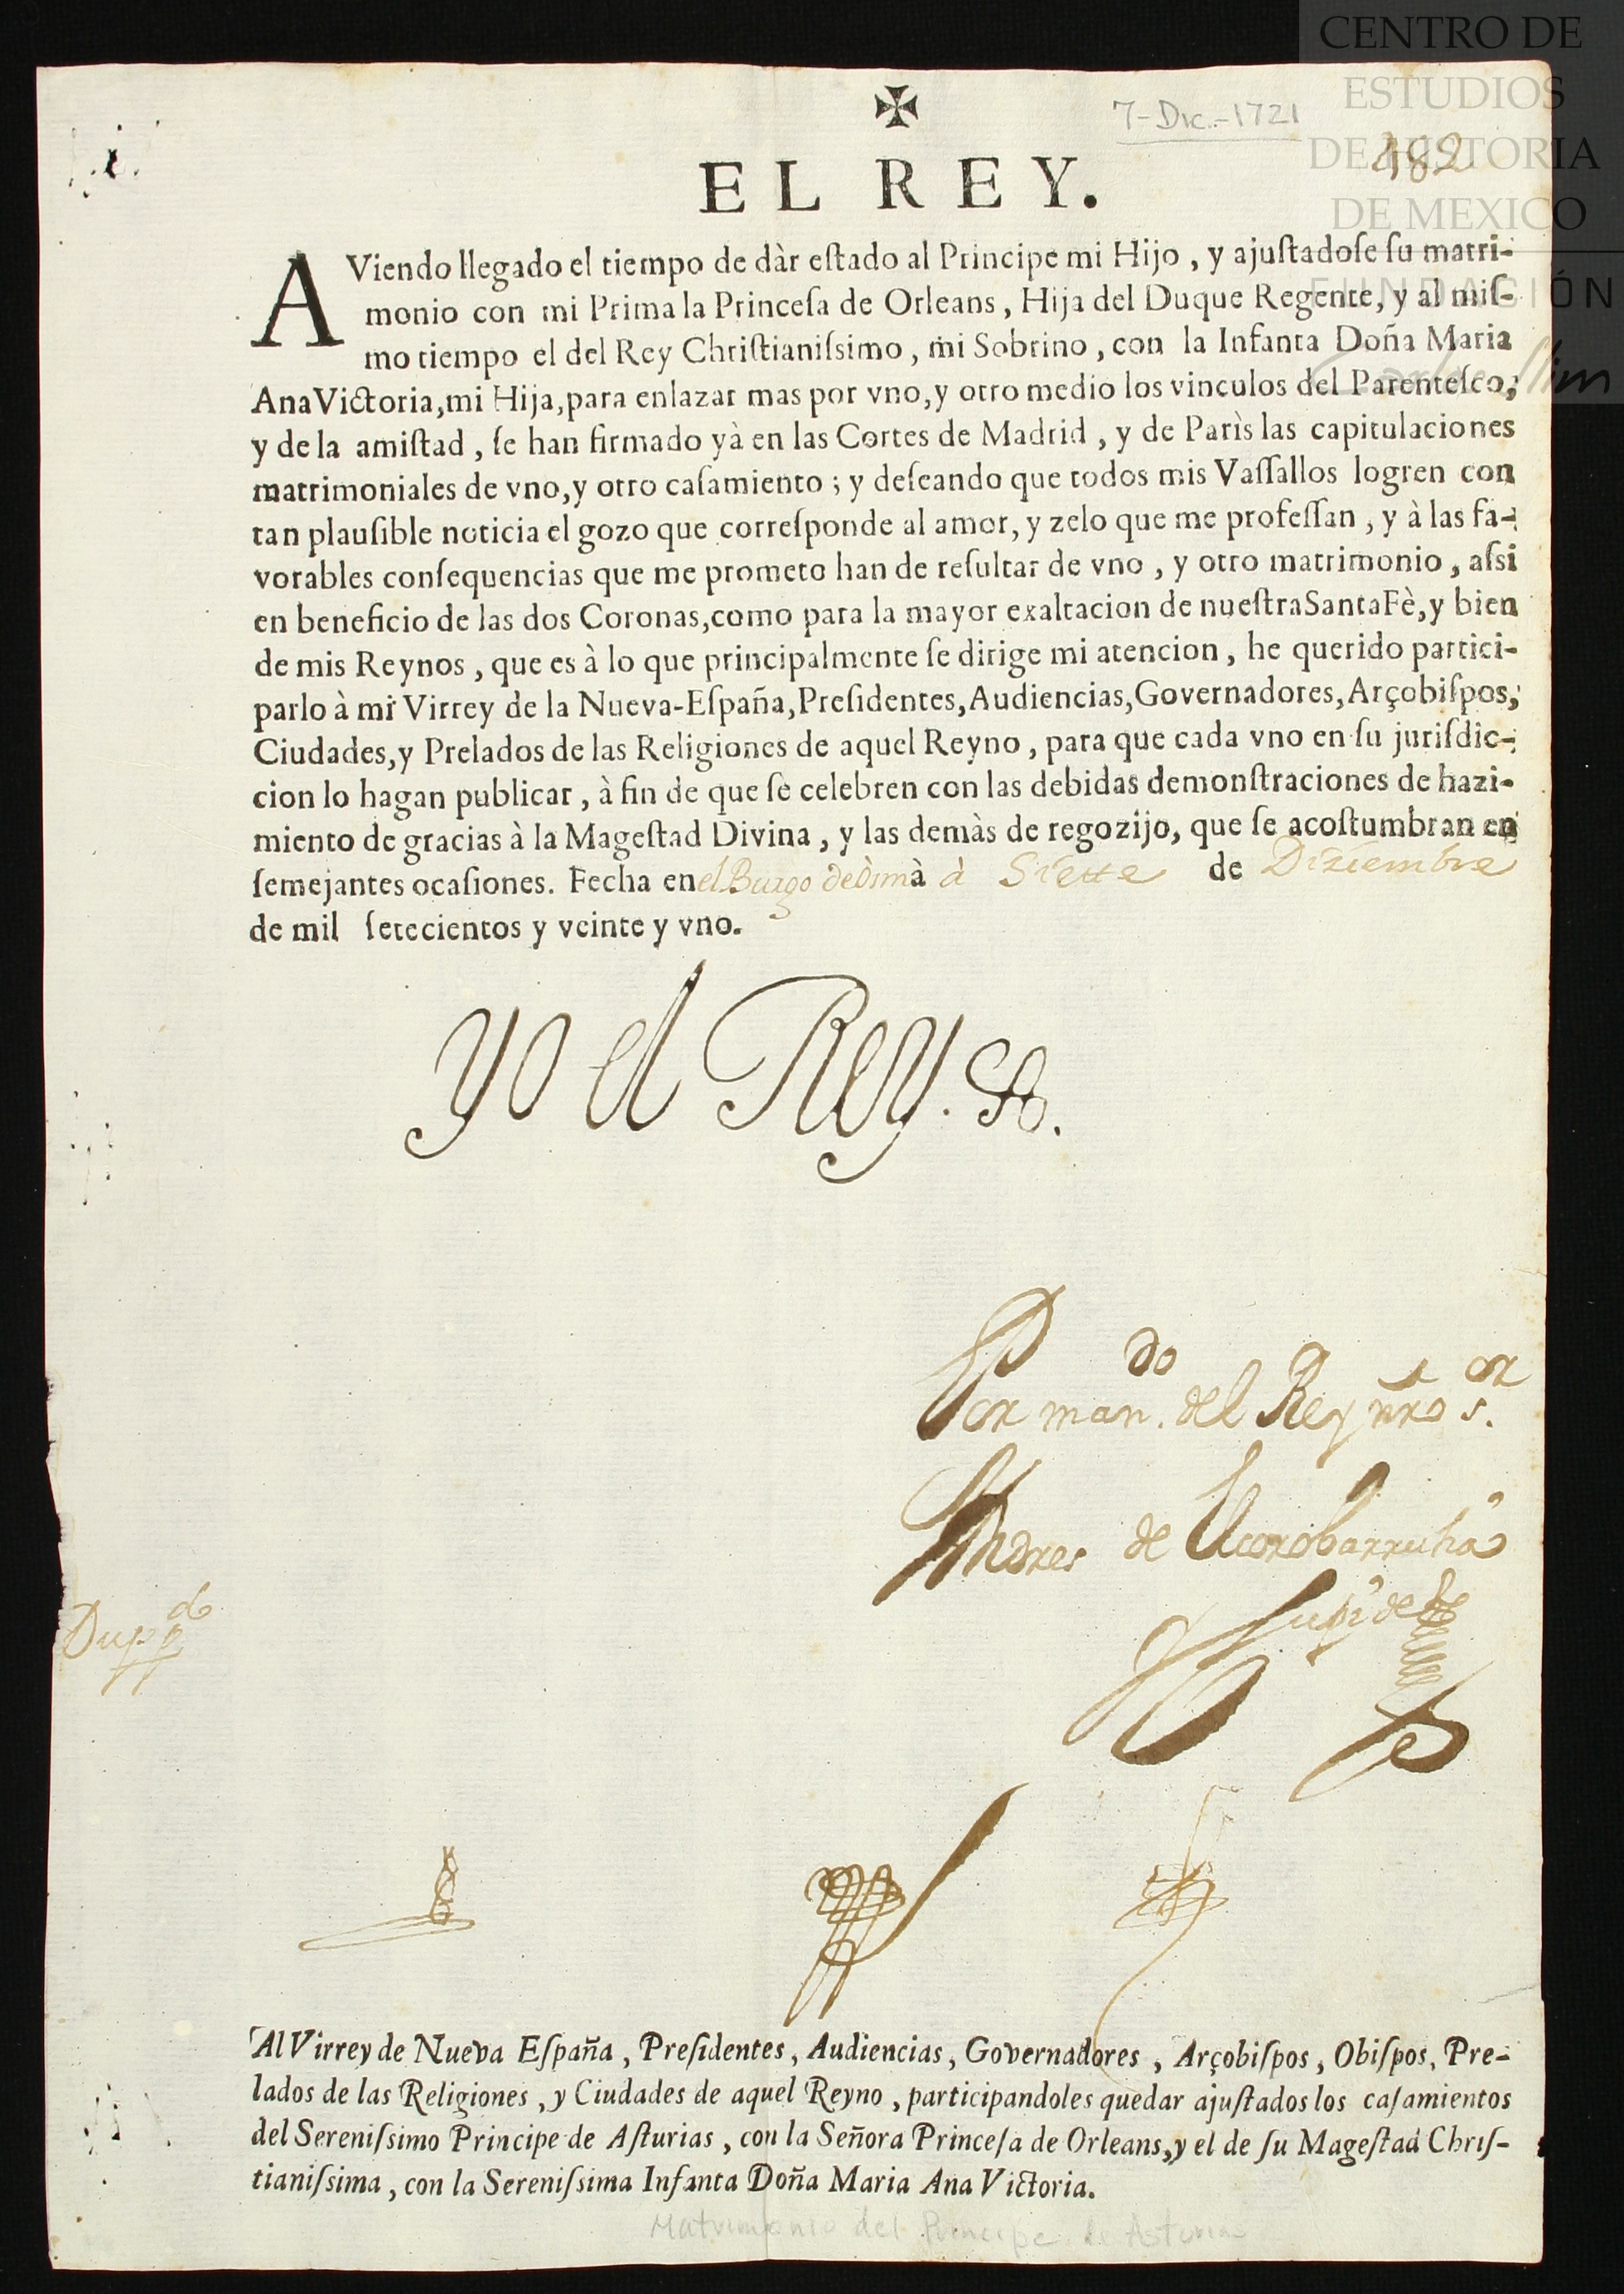 CENTRO DE
ESTUDIOS
DE HISTORIA
DE MEXICO
FUNDACIÓN
7-Dic.-1721
482
✠
EL REY.
AViendo llegado el tiempo de dàr eſtado al Principe mi Hijo, y ajuſtadoſe ſu matri-
monio con mi Prima la Princeſa de Orleans, Hija del Duque Regente, y al miſ-
mo tiempo el del Rey Chriſtianiſsimo, mi Sobrino, con la Infanta Doña Maria
Ana Victoria, mi Hija, para enlazar mas por vno, y otro medio los vinculos del Parenteſco,
y de la amiſtad, ſe han firmado yà en las Cortes de Madrid, y de Parìs las capitulaciones
matrimoniales de vno, y otro caſamiento; y deſeando que todos mis Vaſſallos logren con
tan plauſible noticia el gozo que correſponde al amor, y zelo que me profeſſan, y à las fa-
vorables conſequencias que me prometo han de reſultar de vno, y otro matrimonio, aſsi
en beneficio de las dos Coronas, como para la mayor exaltacion de nueſtra Santa Fè, y bien
de mis Reynos, que es à lo que principalmente ſe dirige mi atencion, he querido partici-
parlo à mi Virrey de la Nueva-Eſpaña, Preſidentes, Audiencias, Governadores, Arçobiſpos,
Ciudades, y Prelados de las Religiones de aquel Reyno, para que cada vno en ſu juriſdic-
cion lo hagan publicar, à fin de que ſe celebren con las debidas demonſtraciones de hazi-
miento de gracias à la Mageſtad Divina, y las demàs de regozijo, que ſe acoſtumbran en
ſemejantes ocaſiones. Fecha en el Burgo de Osma à à Siette de Diziembre
de mil ſetecientos y veinte y vno.
Yo el Rey.
Por man.do del Rey nro s.or
Andres de
Dupp.do
Al Virrey de Nueva Eſpaña, Preſidentes, Audiencias, Governadores, Arçobiſpos, Obiſpos, Pre-
lados de las Religiones, y Ciudades de aquel Reyno, participandoles quedar ajuſtados los caſamientos
del Sereniſsimo Principe de Aſturias, con la Señora Princeſa de Orleans, y el de ſu Mageſtad Chriſ-
tianiſsima, con la Sereniſsima Infanta Doña Maria Ana Victoria.
Matrimonio del Principe de Asturias